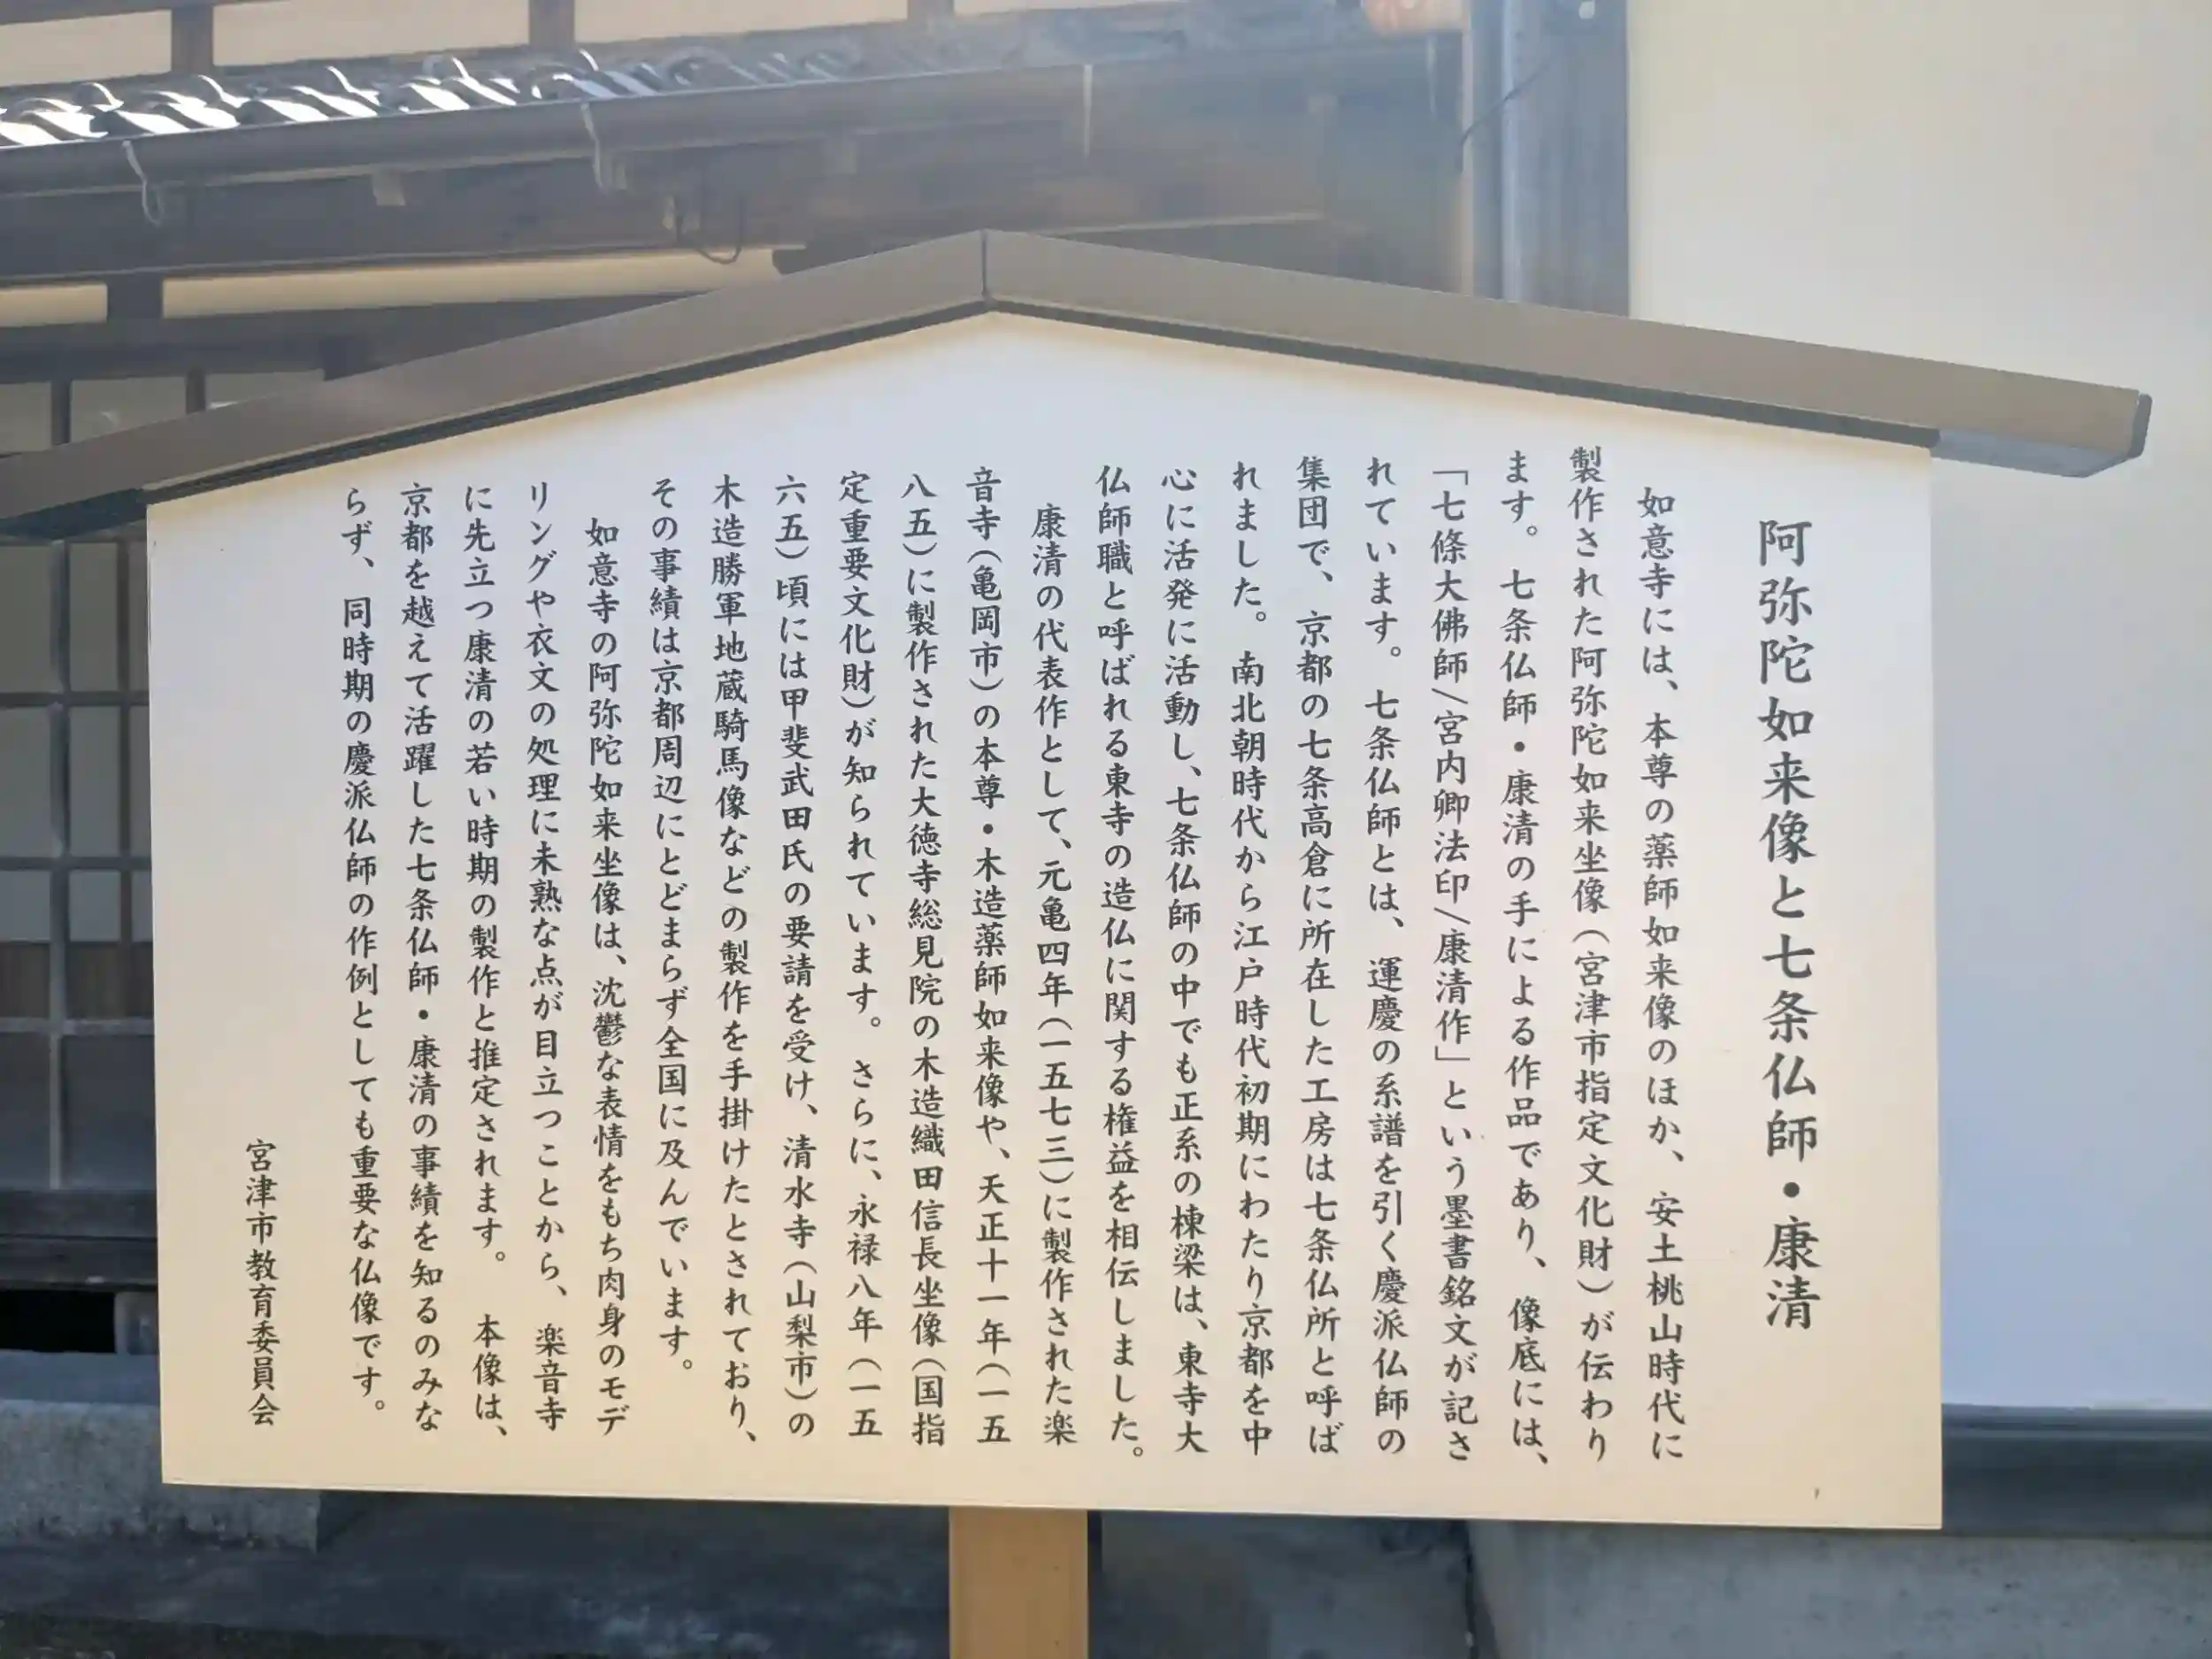 阿弥陀如来像と七条仏師・康清
如意寺には、本尊の薬師如来像のほか、安土桃山時代に
製作された阿弥陀如来坐像(宮津市指定文化財)が伝わり
ます。七条仏師・康清の手による作品であり、像底には、
「七條大佛師/宮内卿法印/康清作」という墨書銘文が記さ
れています。七条仏師とは、運慶の系譜を引く慶派仏師の
集団で、京都の七条高倉に所在した工房は七条仏所と呼ば
れました。南北朝時代から江戸時代初期にわたり京都を中
心に活発に活動し、七条仏師の中でも正系の棟梁は、東寺大
仏師職と呼ばれる東寺の造仏に関する権益を相伝しました。
康清の代表作として、元亀四年(一五七三)に製作された楽
音寺(亀岡市)の本尊・木造薬師如来像や、天正十一年(一五
八五)に製作された大徳寺総見院の木造織田信長坐像(国指
定重要文化財)が知られています。さらに、永禄八年(一五
六五)頃には甲斐武田氏の要請を受け、清水寺(山梨市)の
木造勝軍地蔵騎馬像などの製作を手掛けたとされており、
その事績は京都周辺にとどまらず全国に及んでいます。
如意寺の阿弥陀如来坐像は、沈鬱な表情をもち肉身のモデ
リングや衣文の処理に未熟な点が目立つことから、楽音寺
に先立つ康清の若い時期の製作と推定されます。 本像は、
京都を越えて活躍した七条仏師・康清の事績を知るのみな
らず、同時期の慶派仏師の作例としても重要な仏像です。
宮津市教育委員会